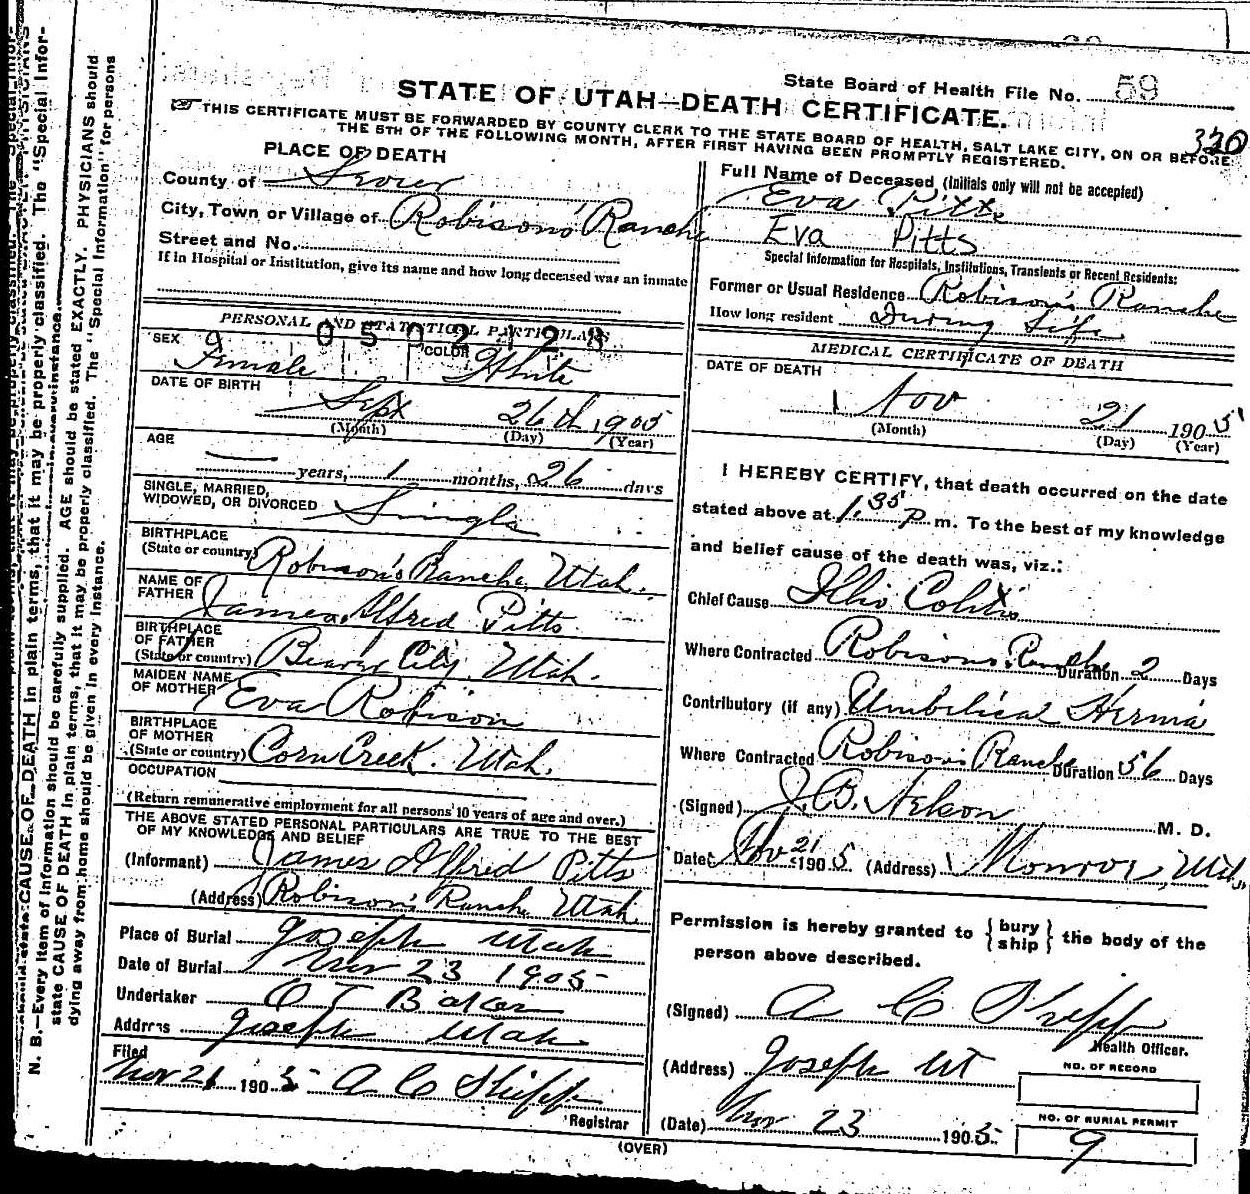 State Board of Health File No. 59
STATE OF UTAH—DEATH CERTIFICATE.
320
THIS CERTIFICATE MUST BE FORWARDED BY COUNTY CLERK TO THE STATE BOARD OF HEALTH, SALT LAKE CITY, ON OR BEFORE
THE 5TH OF THE FOLLOWING MONTH, AFTER FIRST HAVING BEEN PROMPTLY REGISTERED.
PLACE OF DEATH
County of Sevier
City, Town or Village of Robison's Ranche
Street and No.
If in Hospital or Institution, give its name and how long deceased was an inmate
PERSONAL AND STATISTICAL PARTICULARS
0502128
SEX Female COLOR White
DATE OF BIRTH
Sept 26th 1905
(Month) (Day) (Year)
AGE
— years, 1 months, 26 days
SINGLE, MARRIED,
WIDOWED, OR DIVORCED Single
BIRTHPLACE
(State or country) Robison's Ranche, Utah.
NAME OF
FATHER James Alfred Pitts
BIRTHPLACE
OF FATHER
(State or country) Beaver City, Utah.
MAIDEN NAME
OF MOTHER Eva Robison
BIRTHPLACE
OF MOTHER
(State or country) Corn Creek. Utah.
OCCUPATION
(Return remunerative employment for all persons 10 years of age and over.)
THE ABOVE STATED PERSONAL PARTICULARS ARE TRUE TO THE BEST
OF MY KNOWLEDGE AND BELIEF
(Informant) James Alfred Pitts
(Address) Robison's Ranche Utah.
Place of Burial Joseph Utah
Date of Burial Nov 23 1905
Undertaker O T Baker
Address Joseph Utah
Filed
Nov 21 1905 A C Shipp
Registrar
Full Name of Deceased (Initials only will not be accepted)
Eva Pitts
Eva Pitts
Special Information for Hospitals, Institutions, Transients or Recent Residents:
Former or Usual Residence Robison's Ranche
How long resident During Life.
MEDICAL CERTIFICATE OF DEATH
DATE OF DEATH
Nov 21 1905
(Month) (Day) (Year)
I HEREBY CERTIFY, that death occurred on the date
stated above at 1.35 P m. To the best of my knowledge
and belief cause of the death was, viz.:
Chief Cause Illio Colitis
Where Contracted Robison's Ranche Duration 2 Days
Contributory (if any) Umbilical Hernia
Where Contracted Robison's Ranche Duration 56 Days
(Signed) J. B. Nelson M. D.
Date Nov 21 1905 (Address) Monroe, Utah
Permission is hereby granted to { bury ship } the body of the
person above described.
(Signed) A C Shipp
Health Officer.
(Address) Joseph Ut
NO. OF RECORD
(Date) Nov 23 1905
NO. OF BURIAL PERMIT
9
(OVER)
N. B.—Every item of information should be carefully supplied. AGE should be stated EXACTLY. PHYSICIANS should
state CAUSE OF DEATH in plain terms, that it may be properly classified. The "Special Information" for persons
dying away from home should be given in every instance.